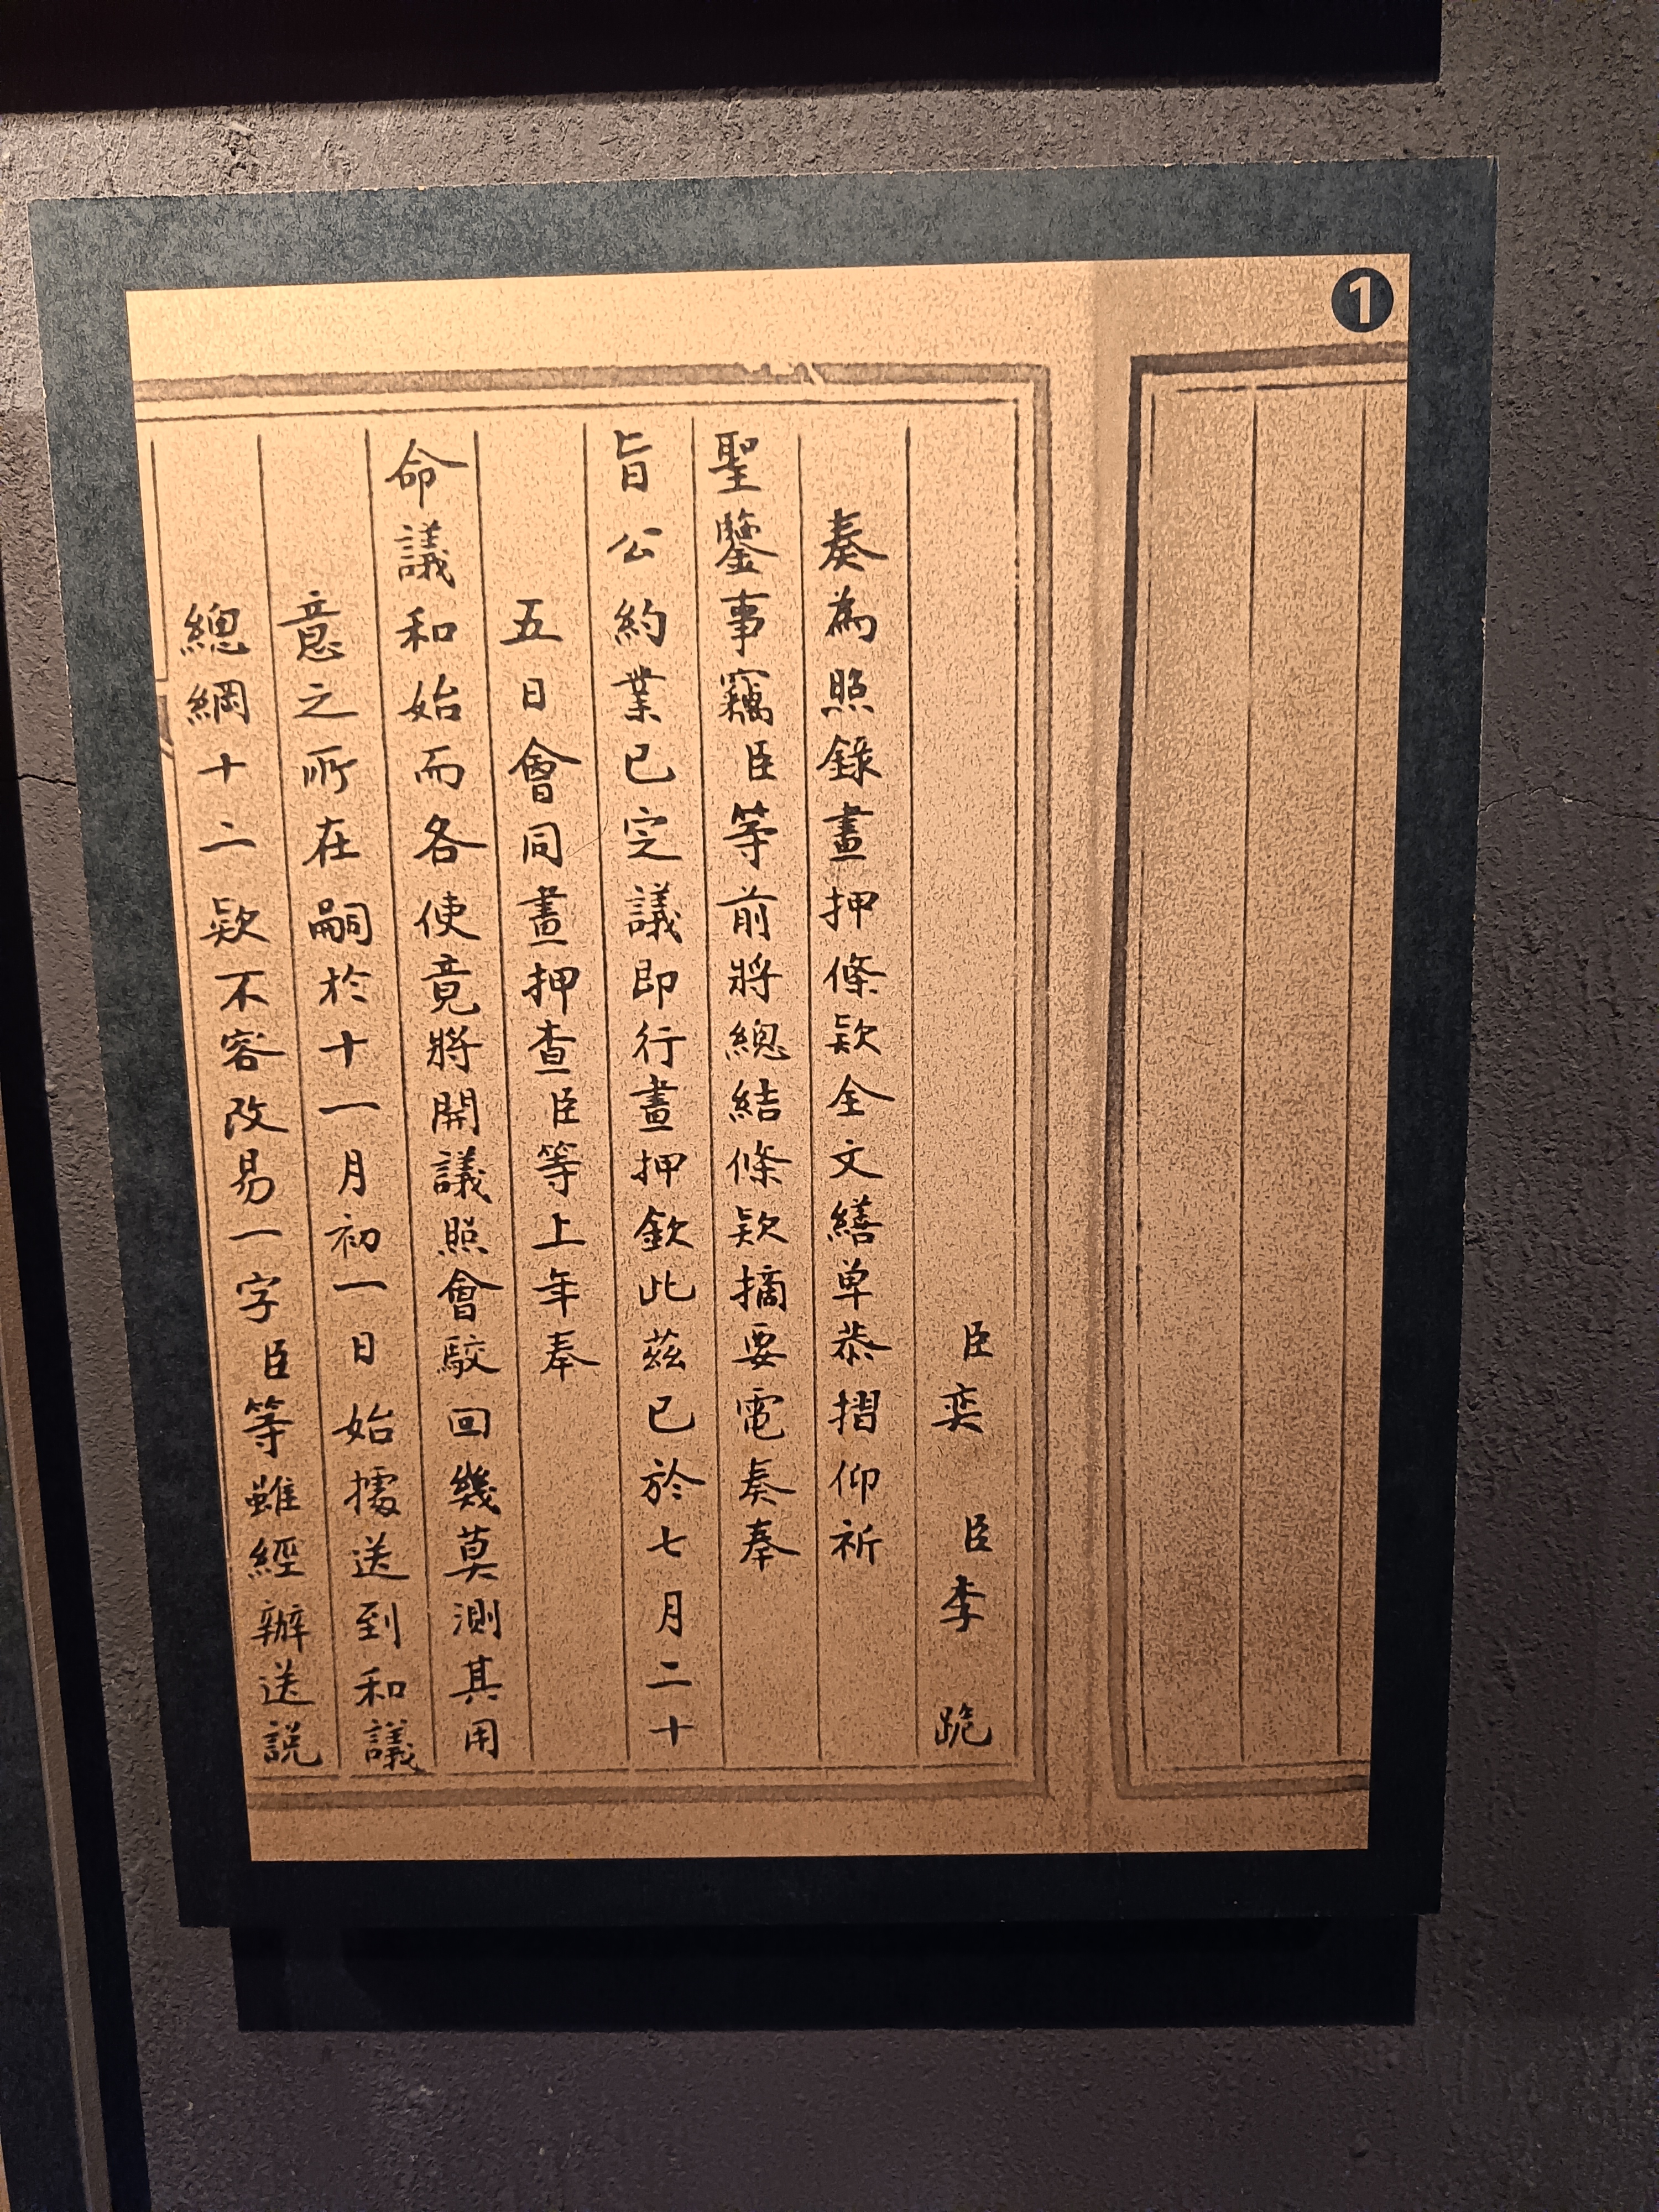 1
臣奕 臣李 跪
奏為照錄畫押條款全文繕单恭摺仰祈
聖鑒事竊臣等前將總結條款摘要電奏奉
旨公約業已定議即行畫押欽此茲已於七月二十
五日會同畫押查臣等上年奉
命議和始而各使竟將開議照會駮回幾莫測其用
意之所在嗣於十一月初一日始㩀送到和議
總綱十二款不容改易一字臣等雖經辦送説